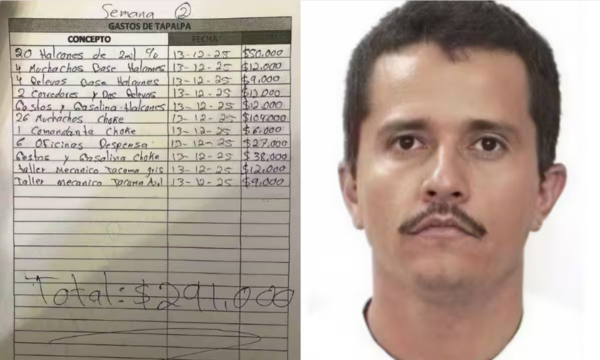 Semana ②
GASTOS DE TAPALPA
CONCEPTO FECHA
20 Halcones de 2mil % 13-12-25 $50,000
4 Muchachos Base Halcones 13-12-25 $12,000
4 Relevos Base Halcones 13-12-25 $9,000
2 Corredores y Relevos 13-12-25 $13,000
Gastos y Gasolina Halcones 13-12-25 $12,000
26 Muchachos Choke 13-12-25 $104,000
1 Comandante Choke 13-12-25 $6,000
6 Oficinas Despensa 13-12-25 $27,000
Gastos y Gasolina Choke 13-12-25 $38,000
Taller Mecanico Tacoma gris 13-12-25 $12,000
Taller Mecanico Tacoma Azul 13-12-25 $9,000
Total: $291,000